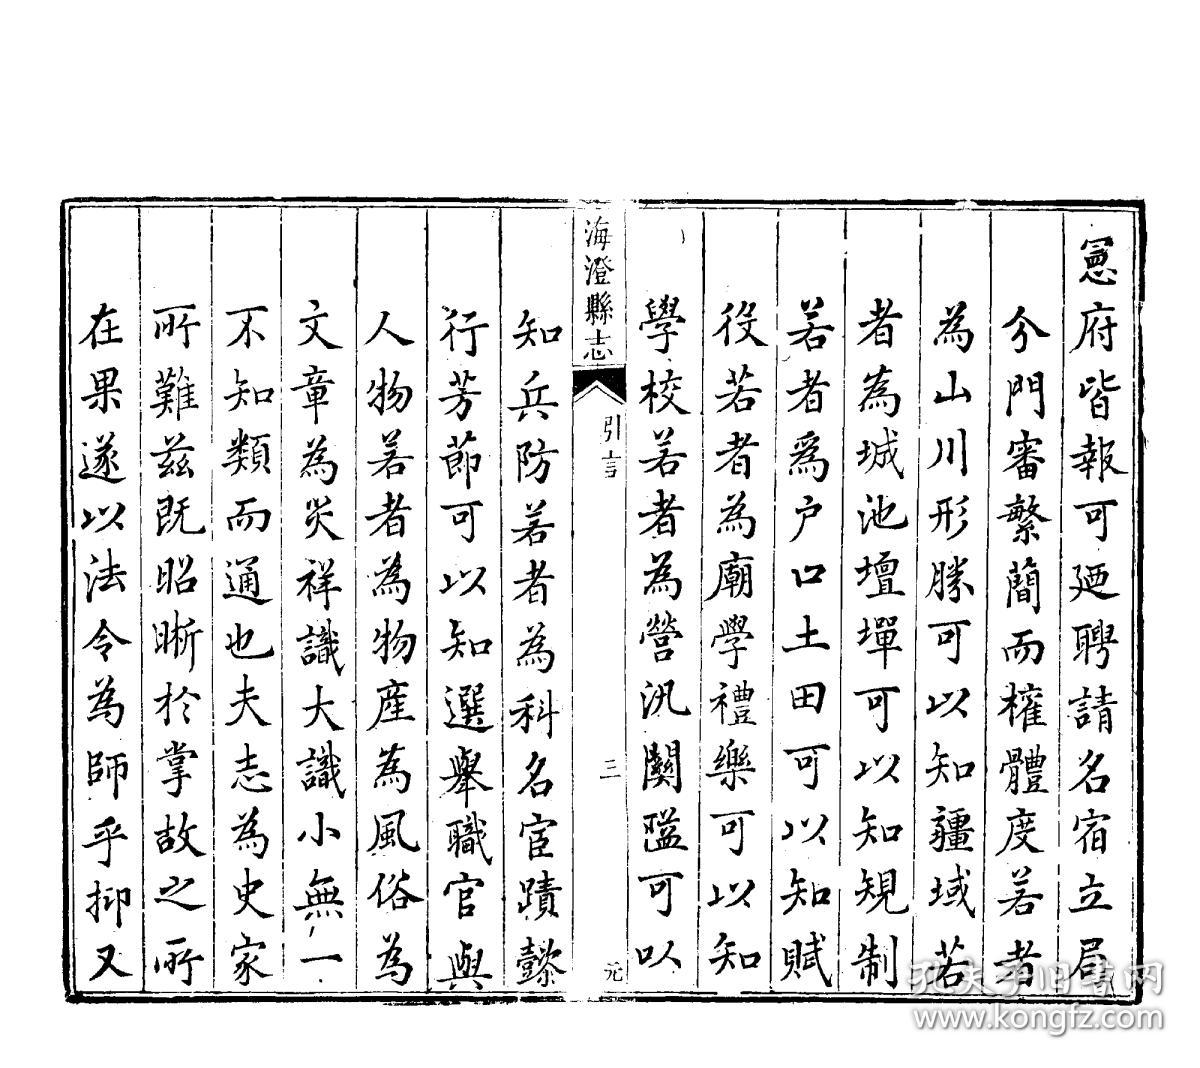 憲府皆報可廼聘請名宿立局
分門審繁蕳而搉體度若者
為山川形勝可以知疆域若
者為城池壇墠可以知規制
若者爲户口土田可以知賦
役若者為廟學禮樂可以知
學校若者為營汛關隘可以
海澄縣志
引言
三
元
知兵防若者為科名宦蹟懿
行芳節可以知選舉職官與
人物若者為物産為風俗為
文章為災祥識大識小無一
不知類而通也夫志為史家
所難茲既昭晰扵掌故之所
在果遂以法令為師乎抑又
孔夫子旧書网
www.kongfz.com